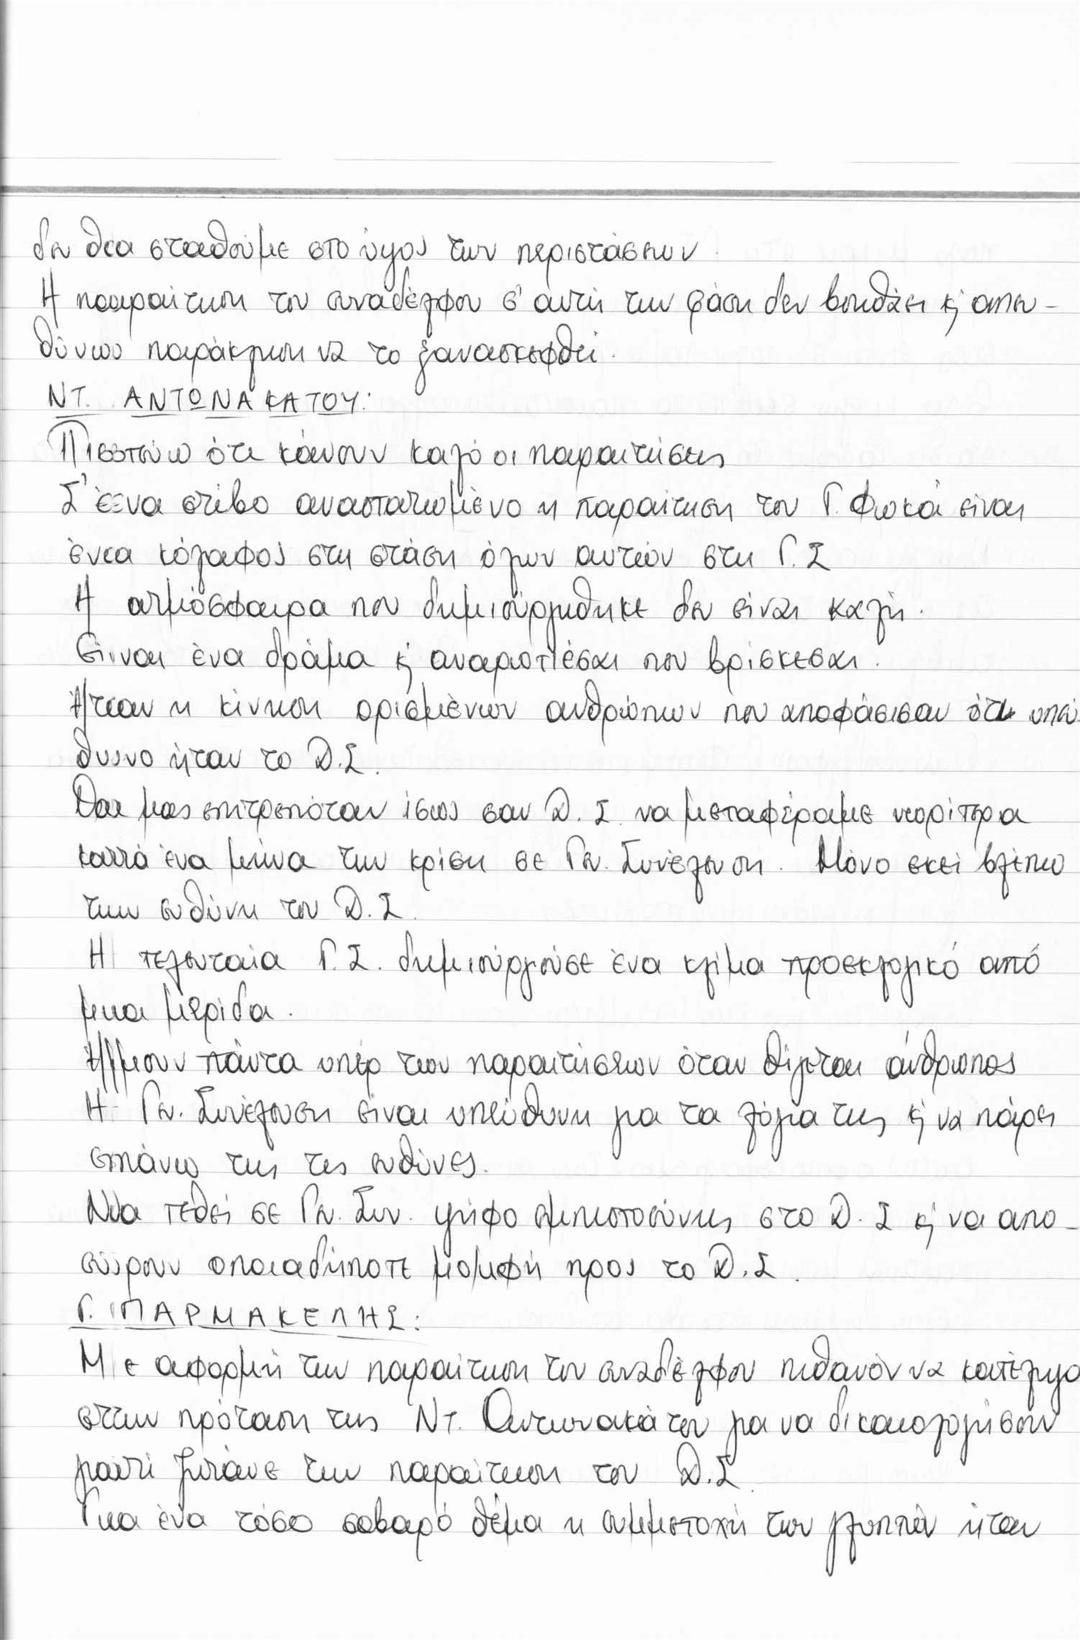 δεν θα σταθούμε στο ύψος των περιστάσεων.
Η παραίτηση του συναδέλφου σ' αυτή την φάση δεν βοηθάει κ' απευ-
θύνω παράκληση να το ξανασκεφθεί.
ΝΤ. ΑΝΤΩΝΑΚΑΤΟΥ:
Πιστεύω ότι κάνουν καλό οι παραιτήσεις
Σ' ένα στίβο αναστατωμένο η παραίτηση του Γ. Φωκά είναι
ένα κόλαφος στη στάση όλων αυτών στη Γ.Σ
Η ατμόσφαιρα που δημιουργήθηκε δεν είναι καλή.
Είναι ένα δράμα κ' αναρωτιέσαι που βρίσκεσαι.
Ήταν η κίνηση ορισμένων ανθρώπων που αποφάσισαν ότι υπεύ
θυνο ήταν το Δ.Σ.
Θα μας επιτρεπόταν ίσως σαν Δ.Σ. να μεταφέραμε νωρίτερα
κατά ένα μήνα την κρίση σε Γεν. Συνέλευση. Μόνο εκεί βλέπω
την ευθύνη του Δ.Σ.
Η τελευταία Γ.Σ. δημιουργούσε ένα κλίμα προεκλογικό από
μια μερίδα.
Ήμουν πάντα υπέρ των παραιτήσεων όταν θίγεται άνθρωπος
Η Γεν. Συνέλευση είναι υπεύθυνη για τα λόγια της κ' να πάρει
επάνω της τις ευθύνες.
Να τεθεί σε Γεν. Συν. ψήφο εμπιστοσύνης στο Δ.Σ κ' να απο-
σύρουν οποιαδήποτε μομφή προς το Δ.Σ.
Γ. ΠΑΡΜΑΚΕΛΗΣ:
Με αφορμή την παραίτηση του συναδέλφου πιθανόν να κατέληγα
στην πρόταση της Ντ. Αντωνακάτου για να δικαιολογήσουν
γιατί ζητάνε την παραίτηση του Δ.Σ
Για ένα τόσο σοβαρό θέμα η συμμετοχή των γλυπτών ήταν